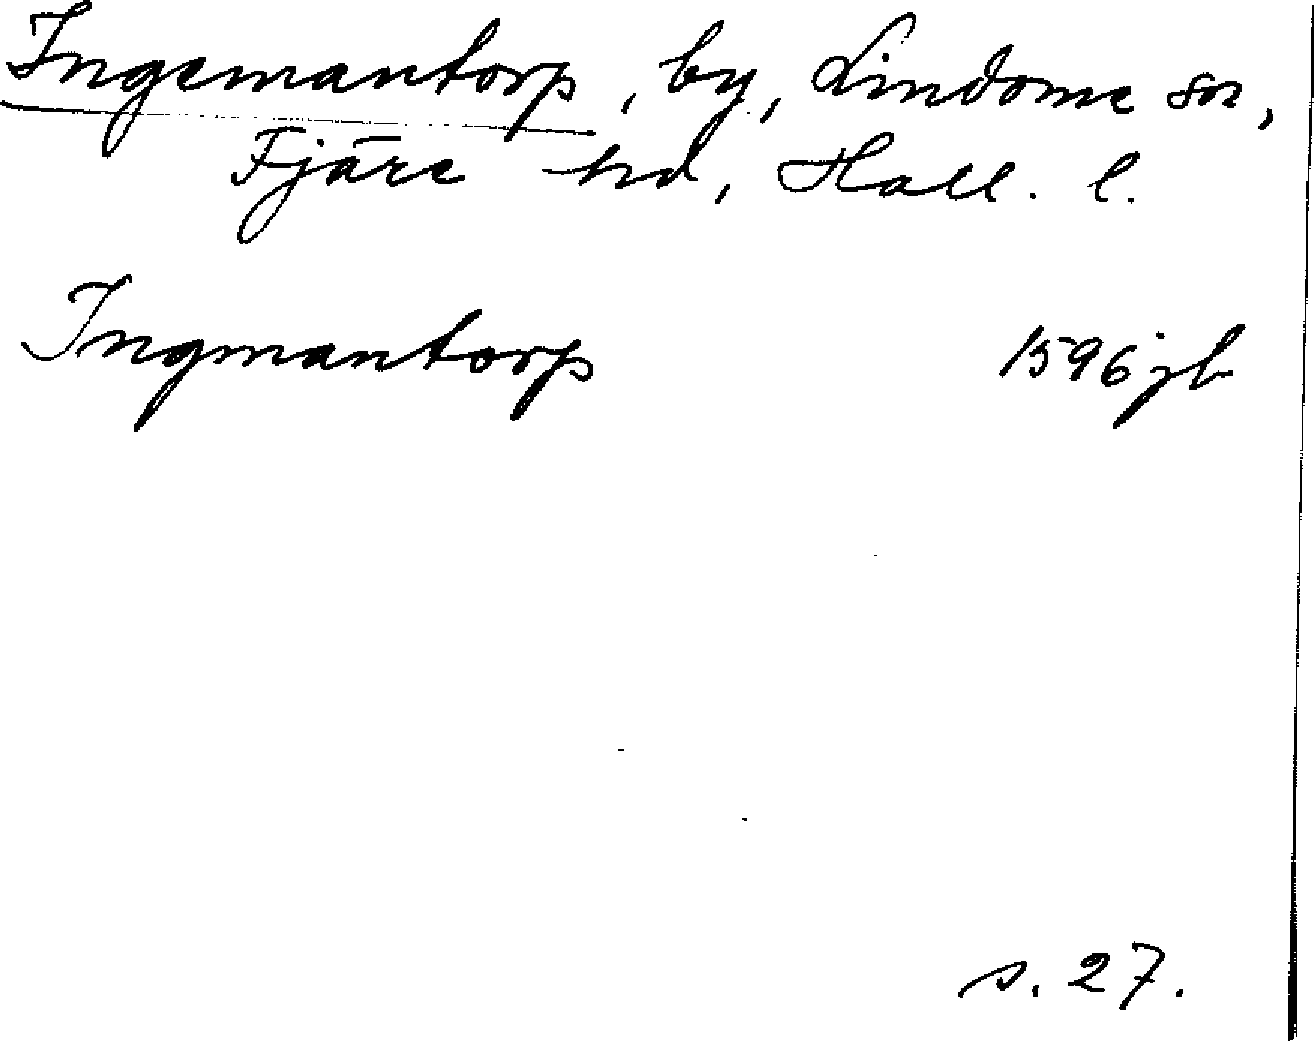 Ingemantorp, by, Lindome sn,
Fjäre hd, Hall. l.
Ingmantorp 1596 jb
s. 27.